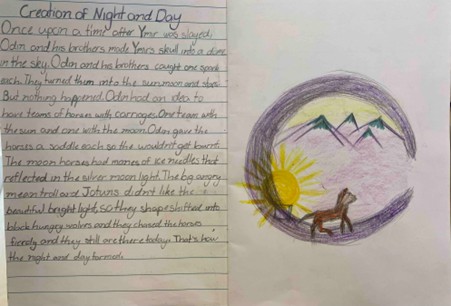 Creation of Night and Day
Once upon a time after Ymir was slayed,
Odin and his brothers made Ymirs skull into a dome
in the sky. Odin and his brothers caught one spark
each. They turned them into the sun moon and stars
But nothing happened. Odin had an idea to
have teams of horses with carriages. One team with
the sun and one with the moon. Odin gave the
horses a saddle each so the wouldn't get burnt.
The moon horses had manes of ice needles that
reflected in the silver moon light. The big angry
mean troll and Jotuns didn't like the
beautiful bright light, so they shapeshifted into
black hungry wolves and they chased the horses
and they still are there today. That's how
the night and day formed.